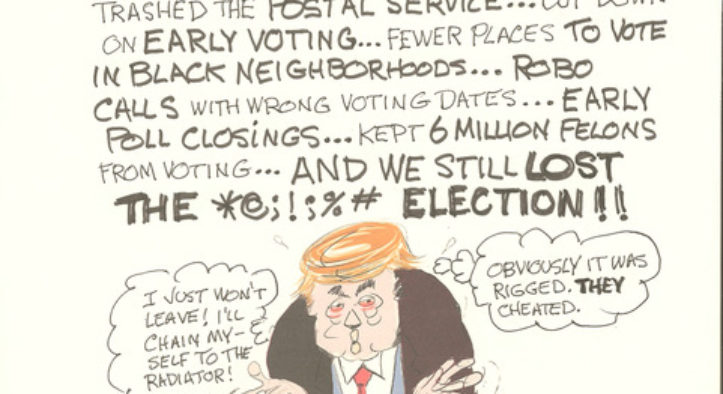 TRASHED THE POSTAL SERVICE... CUT DOWN
ON EARLY VOTING... FEWER PLACES TO VOTE
IN BLACK NEIGHBORHOODS... ROBO
CALLS WITH WRONG VOTING DATES... EARLY
POLL CLOSINGS... KEPT 6 MILLION FELONS
FROM VOTING... AND WE STILL LOST
THE *@;!;%# ELECTION!!
I JUST WON'T
LEAVE! I'LL
CHAIN MY-
SELF TO THE
RADIATOR!
OBVIOUSLY IT WAS
RIGGED. THEY
CHEATED.